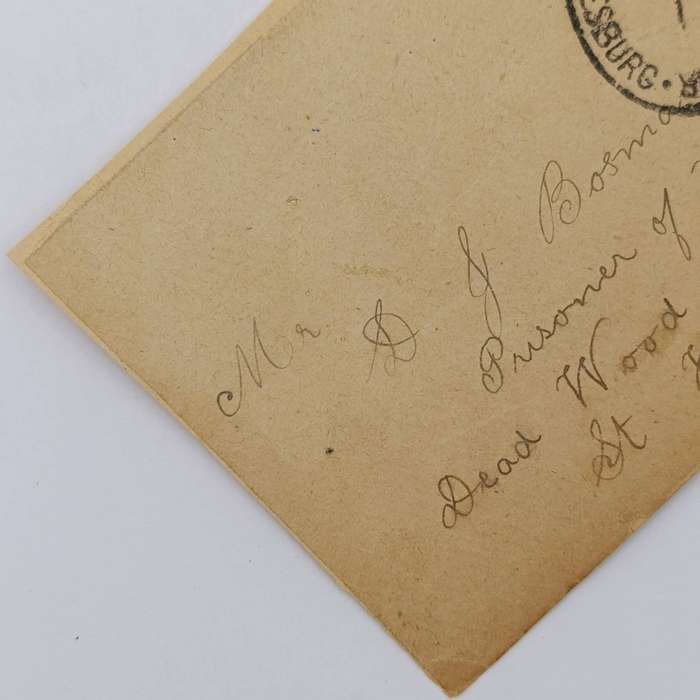 ESBURG ·
Mr D J Bosma
Prisoner of
Dead Wood
St